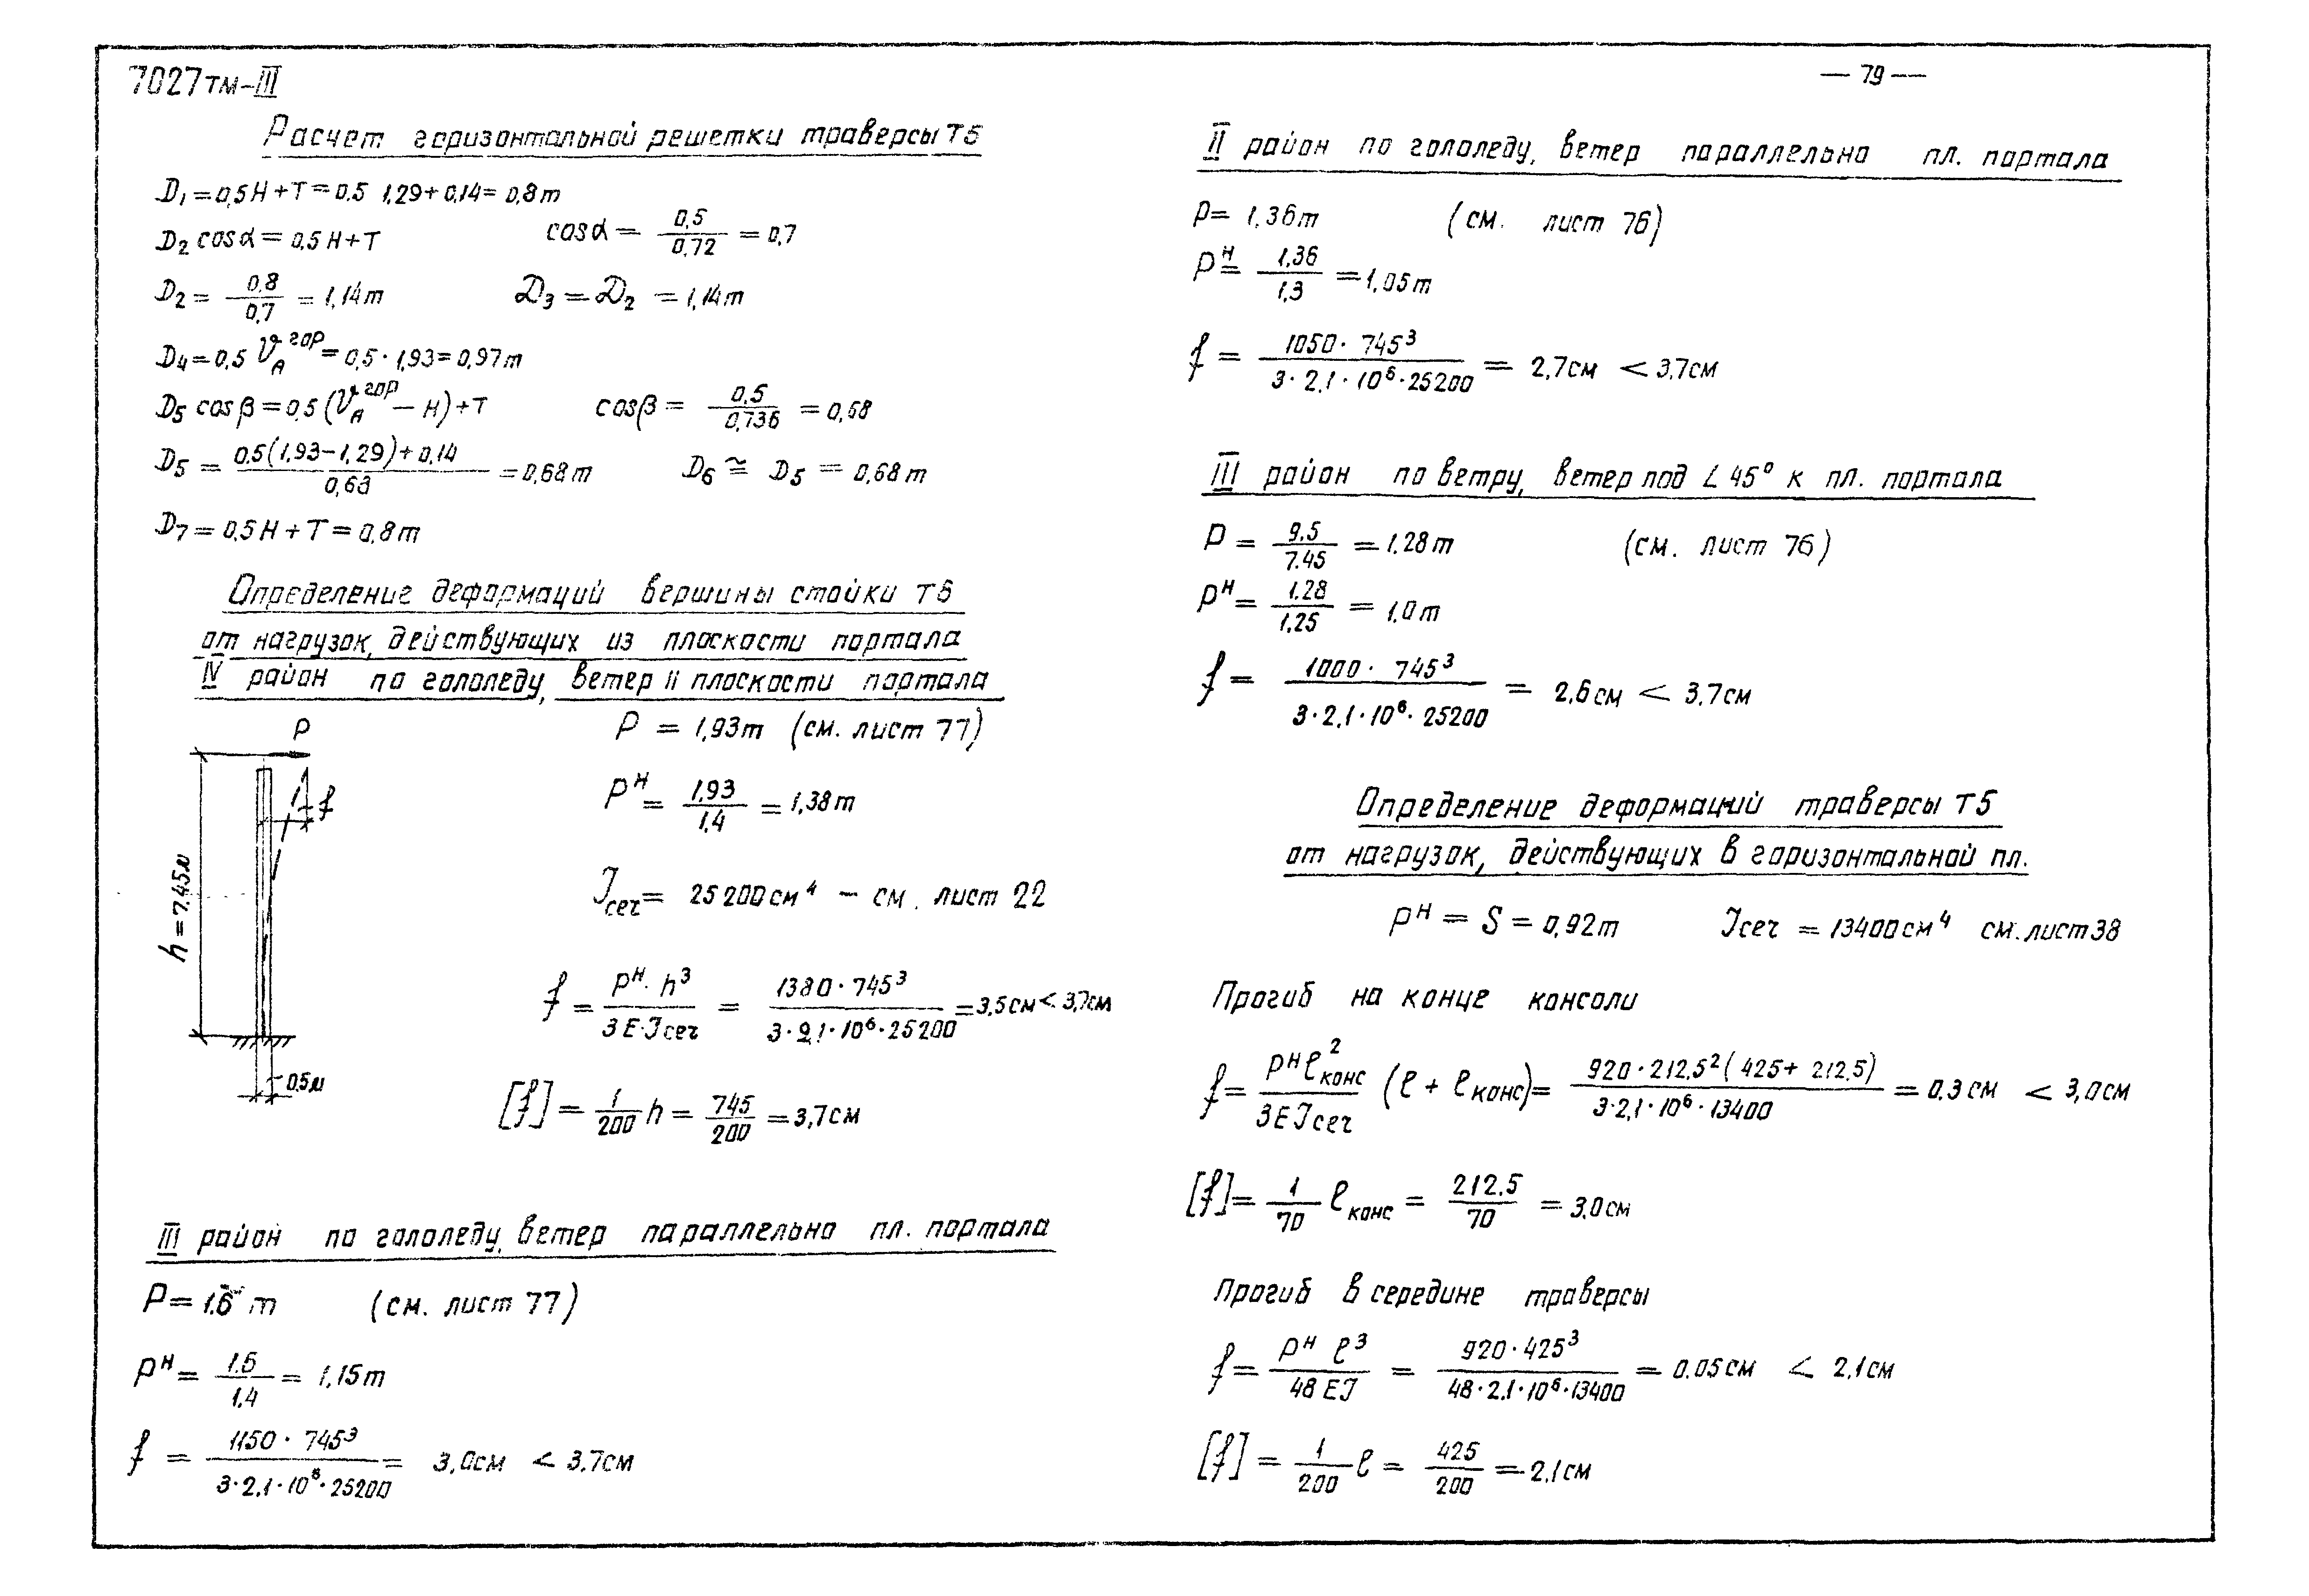 7027тм-III
— 79 —
Расчет горизонтальной решетки траверсы Т5
D₁ = 0,5H + T = 0.5 1,29 + 0,14 = 0,8т
D₂ cosα = 0,5H + T cosα = 0,5/0,72 = 0,7
D₂ = 0,8/0,7 = 1,14т D₃ = D₂ = 1,14т
D₄ = 0,5 V_A^гор = 0,5 · 1,93 = 0,97т
D₅ cosβ = 0,5 (V_A^гор − H) + T cosβ = 0,5/0,736 = 0,68
D₅ = (0.5(1,93 − 1,29) + 0,14)/0,68 = 0,68т D₆ ≅ D₅ = 0,68т
D₇ = 0,5H + T = 0,8т
Определение деформаций вершины стойки Т5
от нагрузок, действующих из плоскости портала
IV район по гололеду, ветер II плоскости портала
P = 1,93т (см. лист 77)
P
f
h = 7,45м
0,5м
Pᴴ = 1,93/1,4 = 1,38т
Jсеч = 25200см⁴ − см. лист 22
f = Pᴴ · h³/3E·Jсеч = 1380 · 745³/3 · 2,1 · 10⁶ · 25200 = 3,5см < 3,7см
[f] = 1/200 h = 745/200 = 3,7см
III район по гололеду, ветер параллельно пл. портала
P = 1.6 т (см. лист 77)
Pᴴ = 1.6/1.4 = 1,15т
f = 1150 · 745³/3 · 2,1 · 10⁶ · 25200 = 3,0см < 3.7см
II район по гололеду, ветер параллельно пл. портала
P = 1,36т (см. лист 76)
Pᴴ = 1,36/1,3 = 1,05т
f = 1050 · 745³/3 · 2,1 · 10⁶ · 25200 = 2,7см < 3,7см
III район по ветру, ветер под ∠ 45° к пл. портала
P = 9,5/7.45 = 1.28т (см. лист 76)
Pᴴ = 1.28/1,25 = 1,0т
f = 1000 · 745³/3 · 2,1 · 10⁶ · 25200 = 2,6см < 3,7см
Определение деформаций траверсы Т5
от нагрузок, действующих в горизонтальной пл.
Pᴴ = S = 0,92т Jсеч = 13400см⁴ см. лист 38
Прогиб на конце консоли
f = Pᴴ ℓ²конс/3EJсеч (ℓ + ℓконс) = 920 · 212,5² (425 + 212,5)/3 · 2,1 · 10⁶ · 13400 = 0.3см < 3,0см
[f] = 1/70 ℓконс = 212.5/70 = 3,0см
Прогиб в середине траверсы
f = Pᴴ ℓ³/48EJ = 920 · 425³/48 · 2.1 · 10⁶ · 13400 = 0.05см < 2,1см
[f] = 1/200 ℓ = 425/200 = 2,1см